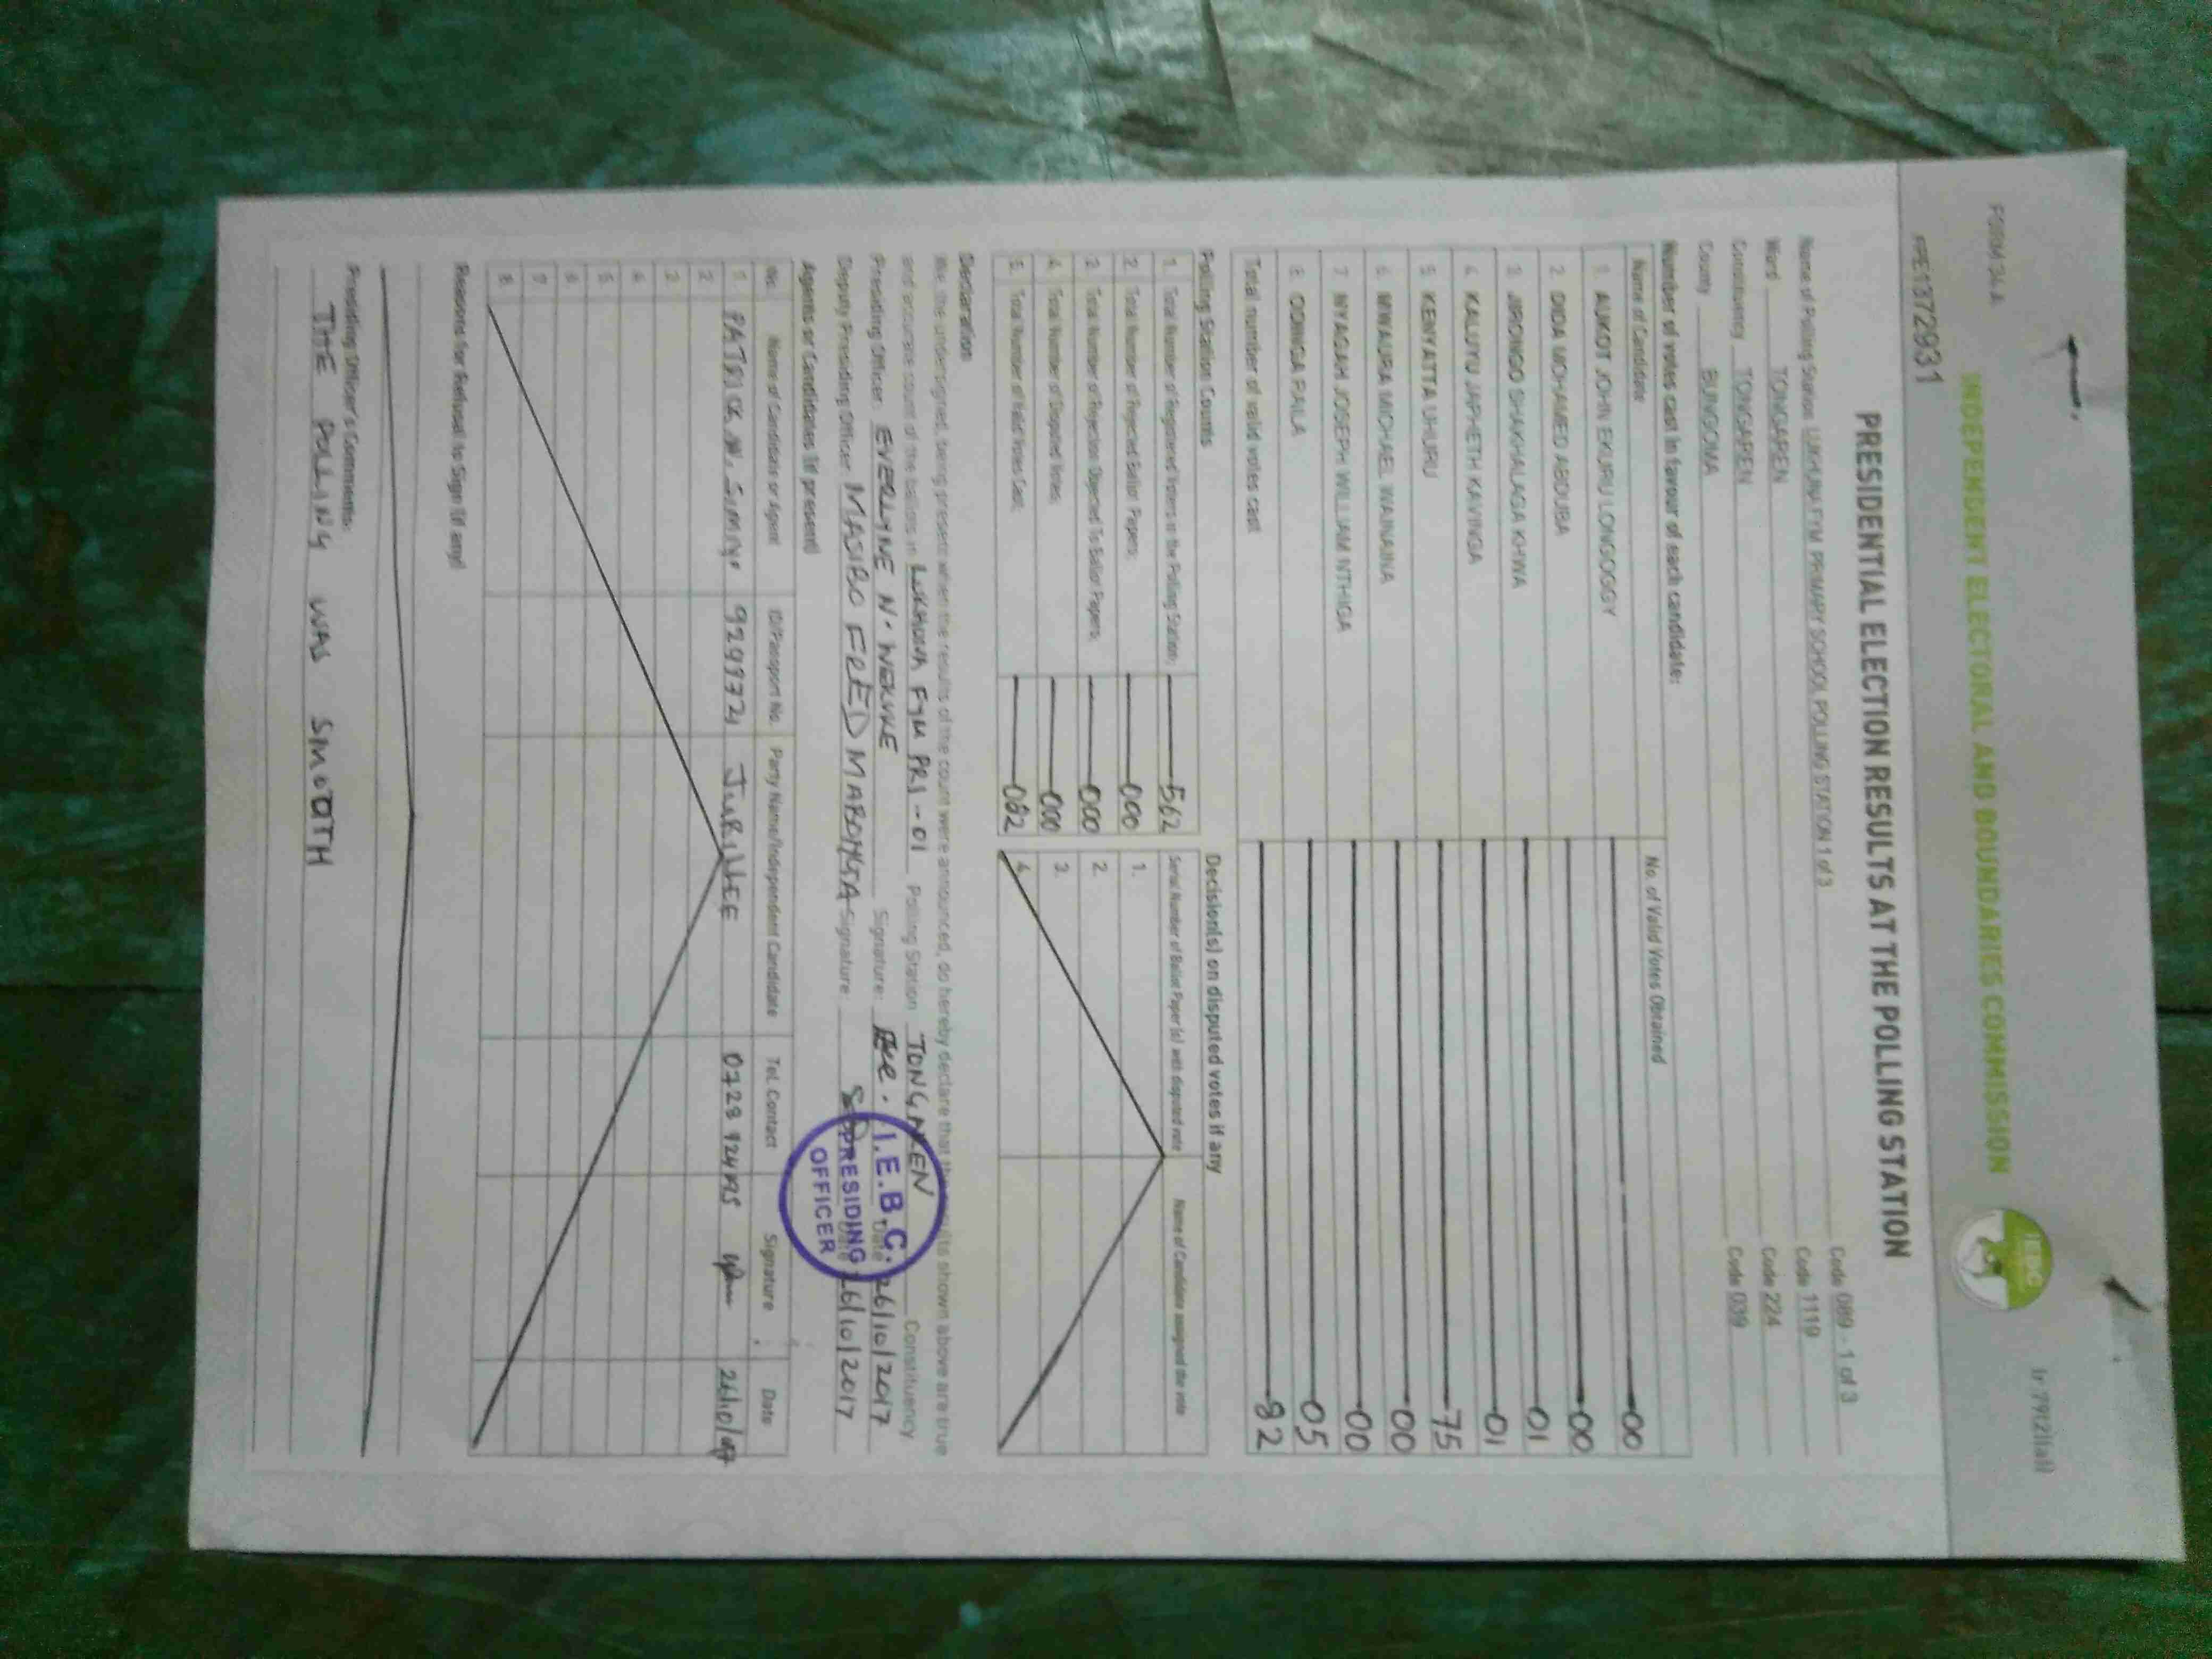 FORM 34 A
INDEPENDENT ELECTORAL AND BOUNDARIES COMMISSION
IEBC
PRESIDENTIAL ELECTION RESULTS AT THE POLLING STATION
Name of Polling Station LUKHUNA FYM PRIMARY SCHOOL POLLING STATION 1 of 3 Code 089 - 1 of 3
Ward TONGAREN Code 1119
Constituency TONGAREN Code 224
County BUNGOMA Code 039
Number of votes cast in favour of each candidate:
Name of Candidate No. of Valid Votes Obtained
1. AUKOT JOHN EKURU LONGOGGY 00
2. DIDA MOHAMED ABDUBA 00
3. JIRONGO SHAKHALAGA KHWA 01
4. KALUYU JAPHETH KAVINGA 01
5. KENYATTA UHURU 75
6. MWAURA MICHAEL WAINAINA 00
7. NYAGAH JOSEPH WILLIAM NTHIGA 00
8. ODINGA RAILA 05
Total number of valid votes cast 82
Polling Station Counts Decision(s) on disputed votes if any
1. Total Number of Registered Voters in the Polling Station: 562 Serial Number of Ballot Paper(s) with disputed vote Name of Candidate assigned the vote
2. Total Number of Rejected Ballot Papers: 000 1.
3. Total Number of Rejection Objected To Ballot Papers: 000 2.
4. Total Number of Disputed Votes: 000 3.
5. Total Number of Valid Votes Cast: 082 4.
Declaration
We, the undersigned, being present when the results of the count were announced, do hereby declare that the results shown above are true
and accurate count of the ballots in LUKHUNA FYM PRI - 01 Polling Station TONGAREN Constituency
Presiding Officer: EVERLYNE N. Signature: Date 26/10/2017
Deputy Presiding Officer: MASIBO FRED MABONGA Signature: Date 26/10/2017
I.E.B.C.
PRESIDING
OFFICER
Agents or Candidates (if present)
No. Name of Candidate or Agent ID/Passport No. Party Name/Independent Candidate Tel. Contact Signature Date
1 PATRICK W. JUBILEE
2
3
4
5
6
7
8
Reasons for Refusal to Sign (if any)
Presiding Officer's Comments:
THE POLLING WAS SMOOTH